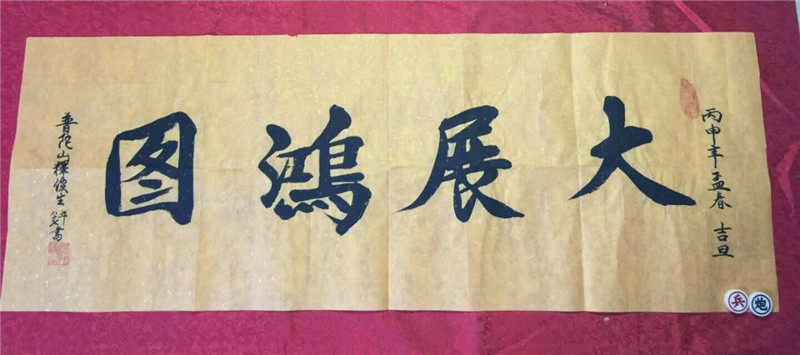 丙申年孟春 吉旦
大展鸿图
普陀山释俊生
书
兵
炮